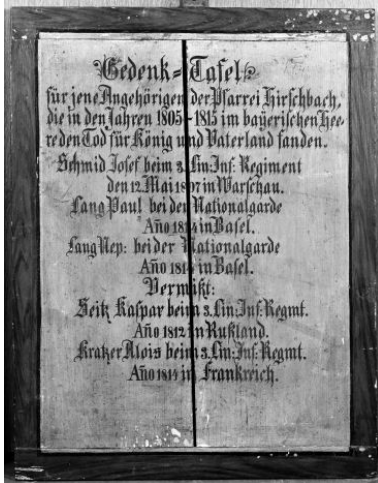 Gedenk=Tafel
für jene Angehörigen der Pfarrei Hirschbach,
die in den Jahren 1805-1815 im bayerischen Hee-
re den Tod für König und Vaterland fanden.
Schmid Josef beim 3. Lin: Inf: Regiment
den 12. Mai 1807 in Warschau.
Lang Paul bei der Nationalgarde
Año 1814 in Basel.
Lang Nep: bei der Nationalgarde
Año 1814 in Basel.
Vermißt:
Seitz Kaspar beim 3. Lin: Inf: Regmt.
Año 1812 in Rußland.
Kratzer Alois beim 3. Lin: Inf: Regmt.
Año 1814 in Frankreich.